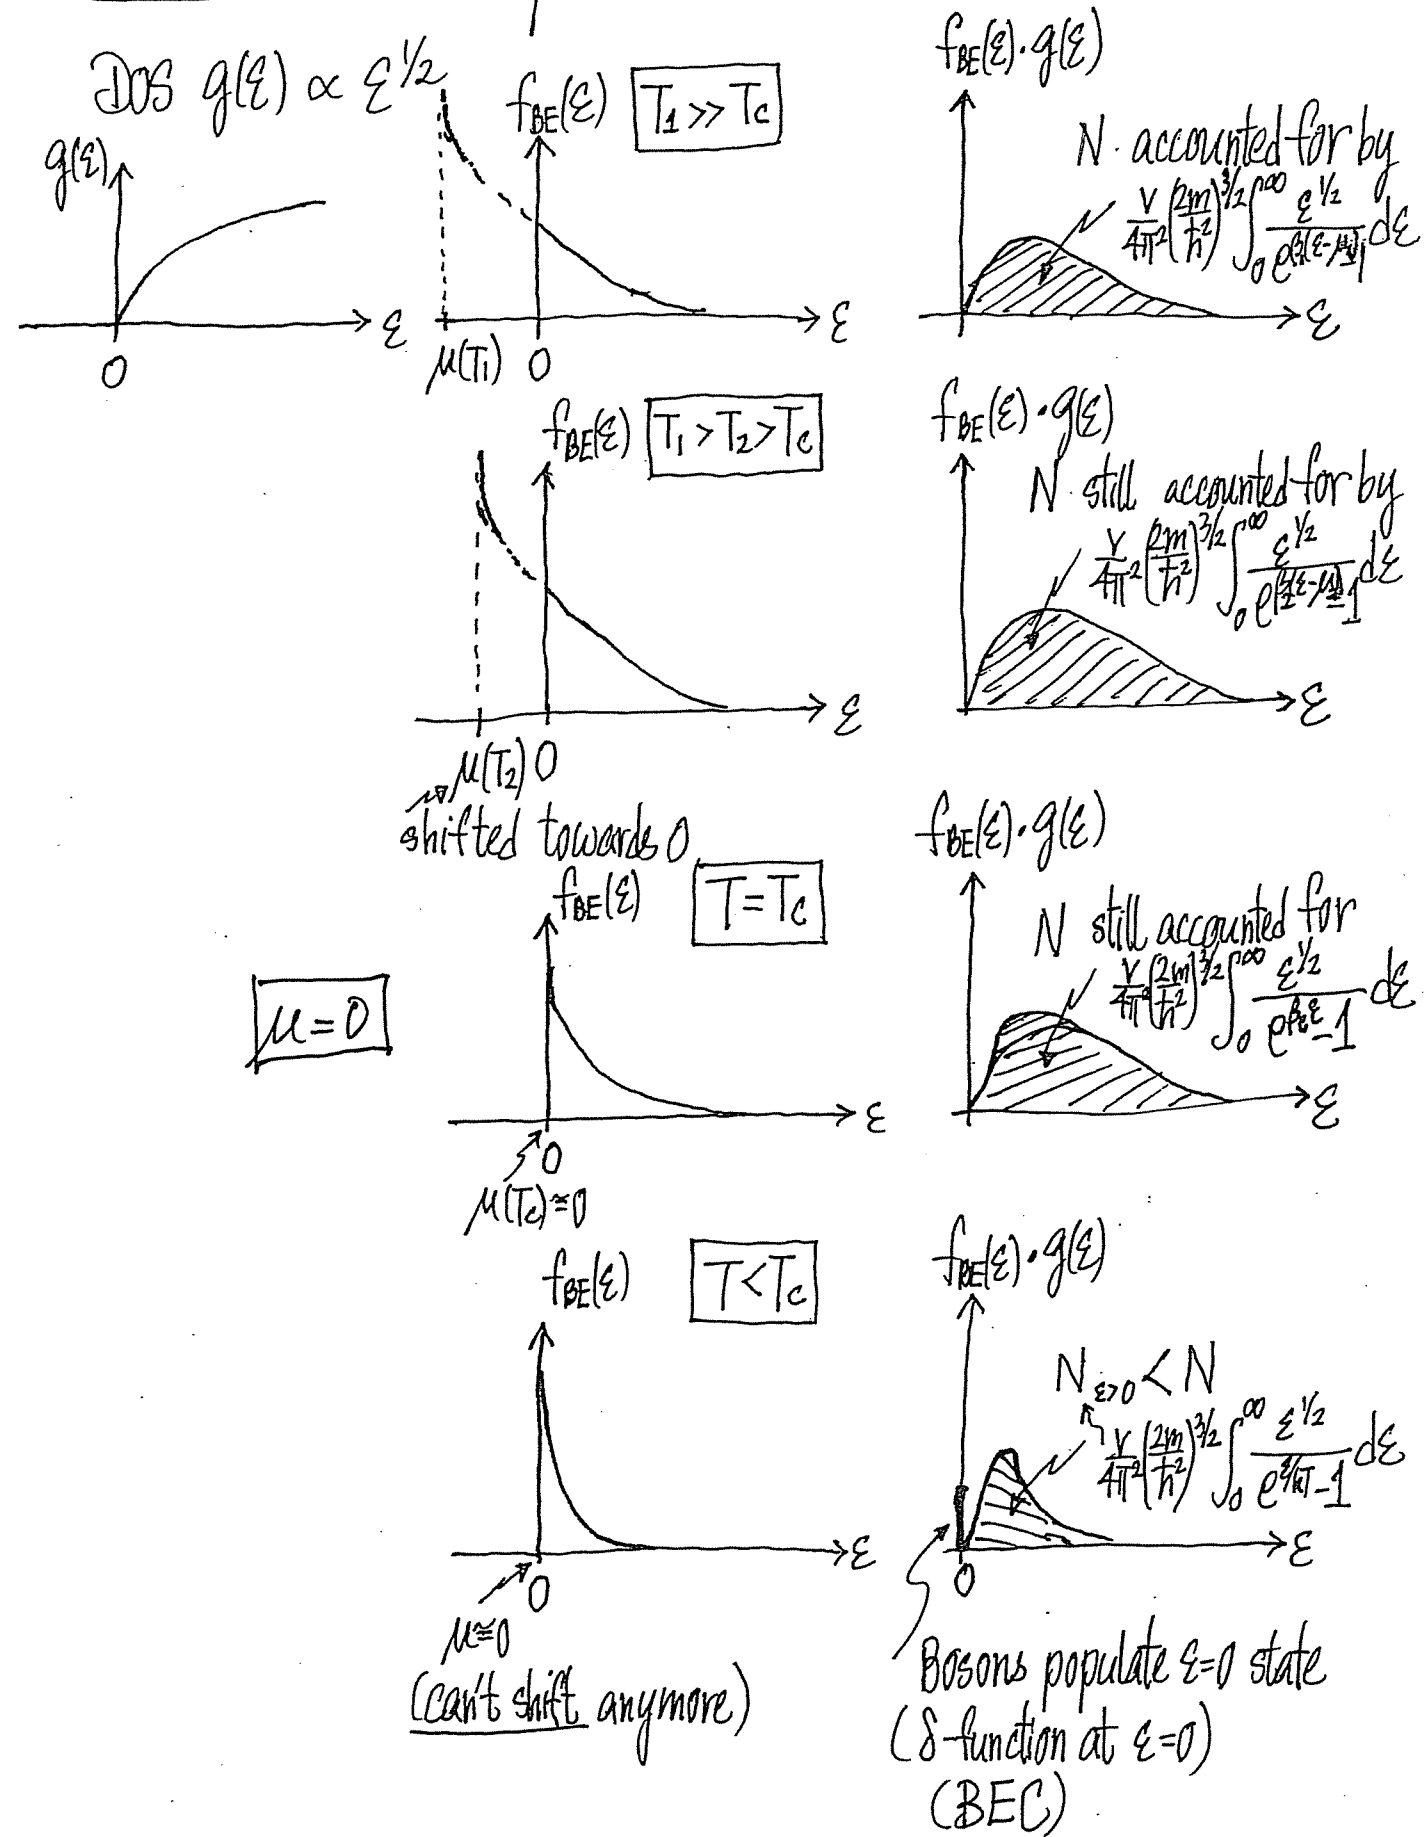 DOS g(ε) ∝ ε^1/2
g(ε)
ε
0
f_BE(ε)
T₁ >> T_c
μ(T₁) 0
ε
f_BE(ε)·g(ε)
N accounted for by
V/4π² (2m/ħ²)^3/2 ∫₀^∞ ε^1/2 / e^β₁(ε-μ₁)-1 dε
ε
f_BE(ε)
T₁ > T₂ > T_c
μ(T₂) 0
ε
shifted towards 0
f_BE(ε)·g(ε)
N still accounted for by
V/4π² (2m/ħ²)^3/2 ∫₀^∞ ε^1/2 / e^β₂(ε-μ₂)-1 dε
ε
μ=0
f_BE(ε)
T=T_c
ε
0
μ(T_c)≅0
f_BE(ε)·g(ε)
N still accounted for
V/4π² (2m/ħ²)^3/2 ∫₀^∞ ε^1/2 / e^β_cε-1 dε
ε
f_BE(ε)
T<T_c
ε
0
μ≅0
(can't shift anymore)
f_BE(ε)·g(ε)
N_ε>0 < N
V/4π² (2m/ħ²)^3/2 ∫₀^∞ ε^1/2 / e^ε/kT-1 dε
ε
0
Bosons populate ε=0 state
(δ-function at ε=0)
(BEC)